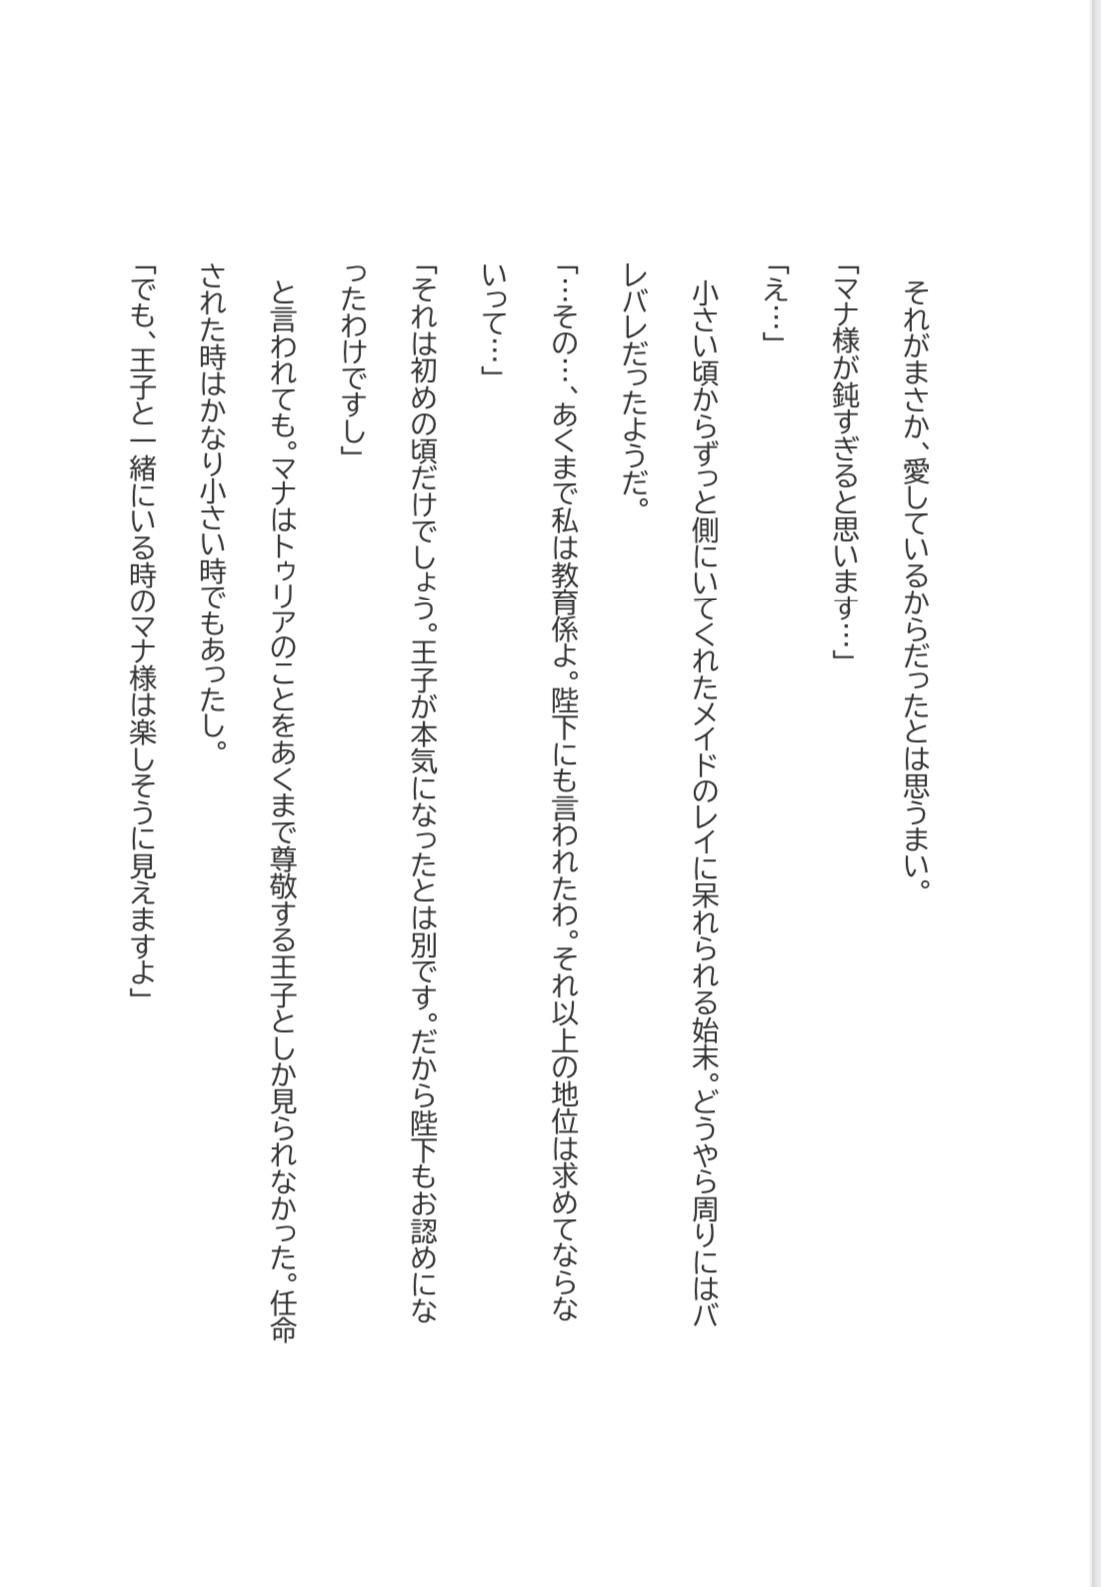 それがまさか、愛しているからだったとは思うまい。
「マナ様が鈍すぎると思います…」
「え…」
小さい頃からずっと側にいてくれたメイドのレイに呆れられる始末。どうやら周りにはバ
レバレだったようだ。
「…その…、あくまで私は教育係よ。陛下にも言われたわ。それ以上の地位は求めてならな
いって…」
「それは初めの頃だけでしょう。王子が本気になったとは別です。だから陛下もお認めにな
ったわけですし」
と言われても。マナはトゥリアのことをあくまで尊敬する王子としか見られなかった。任命
された時はかなり小さい時でもあったし。
「でも、王子と一緒にいる時のマナ様は楽しそうに見えますよ」